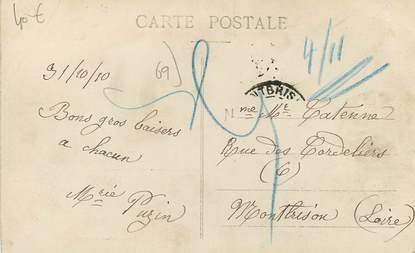 40 €
CARTE POSTALE
4/11
31/10/10
69)
TBRIS
Bons gros baisers
a chacun
Mrie Puzin
Nme Mr Catenne
Rue des Cordeliers
(6)
Montbrison (Loire)